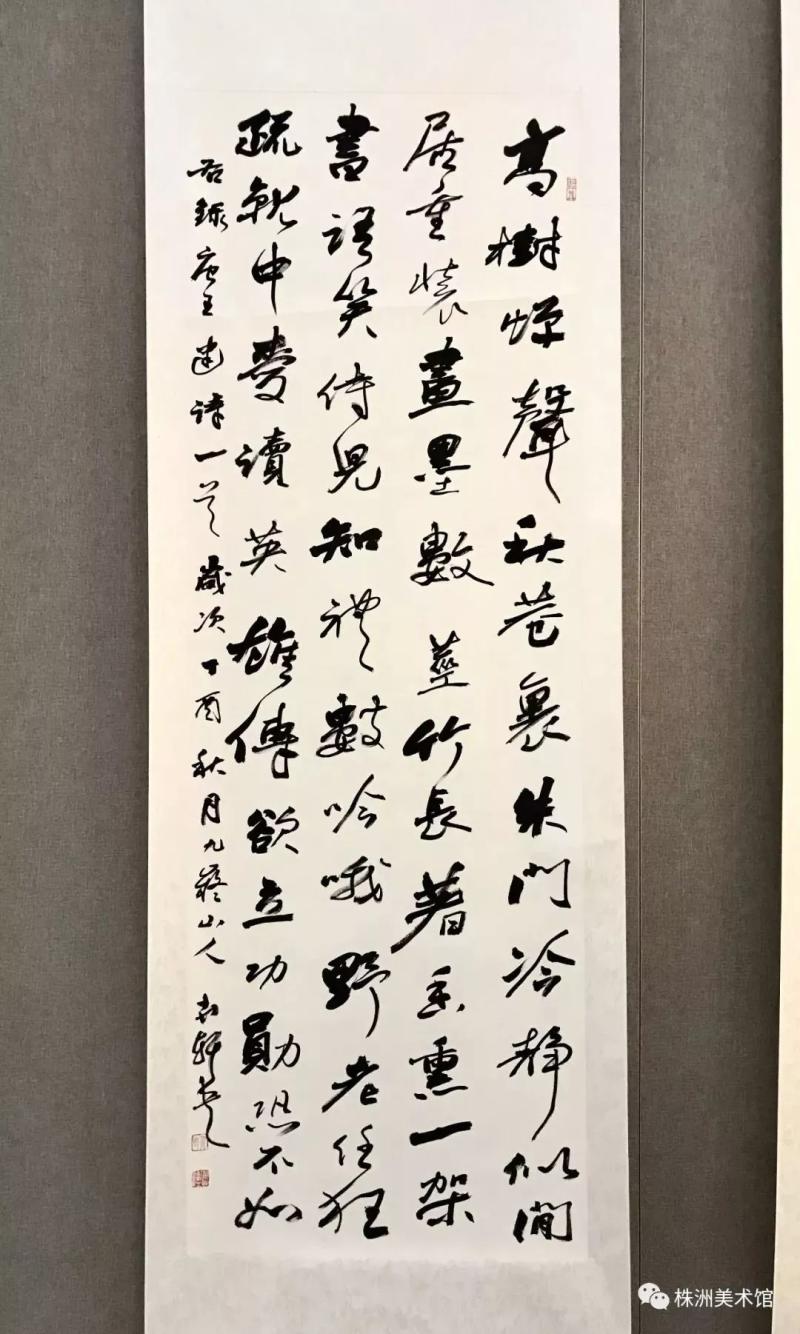 高樹蟬聲秋巷裏朱門冷靜似閒
居重裝畫墨數莖竹長著香熏一架
書語笑侍兒知禮數吟哦野老任狂
疏就中愛讀英雄傳欲立功勳恐不如
右錄唐王建詩一首歲次丁酉秋月九疑山人軒書
株洲美术馆